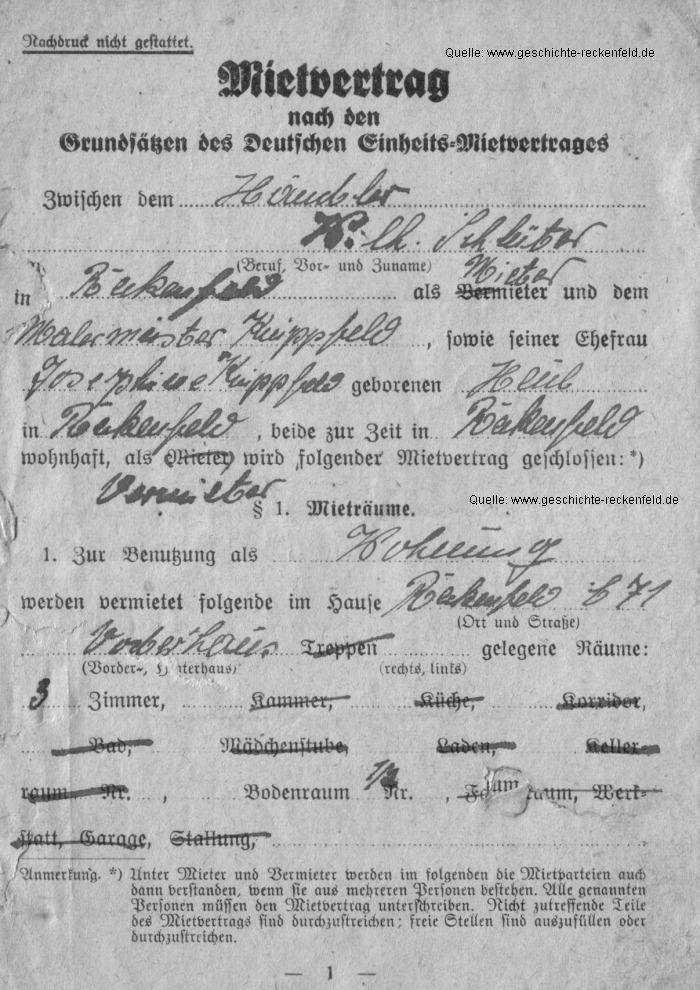 Nachdruck nicht gestattet.
Quelle: www.geschichte-reckenfeld.de
Mietvertrag
nach den
Grundsätzen des Deutschen Einheits-Mietvertrages
Zwischen dem Händler
Schlüter
(Beruf, Vor- und Zuname) Mieter
in Reckenfeld als Vermieter und dem
Malermeister Knippfeld, sowie seiner Ehefrau
Josephine Knippfeld geborenen
in Reckenfeld, beide zur Zeit in Reckenfeld
wohnhaft, als (Mieter) wird folgender Mietvertrag geschlossen:*)
Vermieter
Quelle: www.geschichte-reckenfeld.de
§ 1. Mieträume.
1. Zur Benutzung als Wohnung
werden vermietet folgende im Hause Reckenfeld B 71
(Ort und Straße)
Vorderhaus Treppen gelegene Räume:
(Vorder-, Hinterhaus) (rechts, links)
3 Zimmer, Kammer, Küche, Korridor,
Bad, Mädchenstube, Laden, Keller-
raum Nr. , Bodenraum 1/2 Nr. , raum, Werk-
statt, Garage, Stallung,
Anmerkung. *) Unter Mieter und Vermieter werden im folgenden die Mietparteien auch
dann verstanden, wenn sie aus mehreren Personen bestehen. Alle genannten
Personen müssen den Mietvertrag unterschreiben. Nicht zutreffende Teile
des Mietvertrags sind durchzustreichen; freie Stellen sind auszufüllen oder
durchzustreichen.
— 1 —